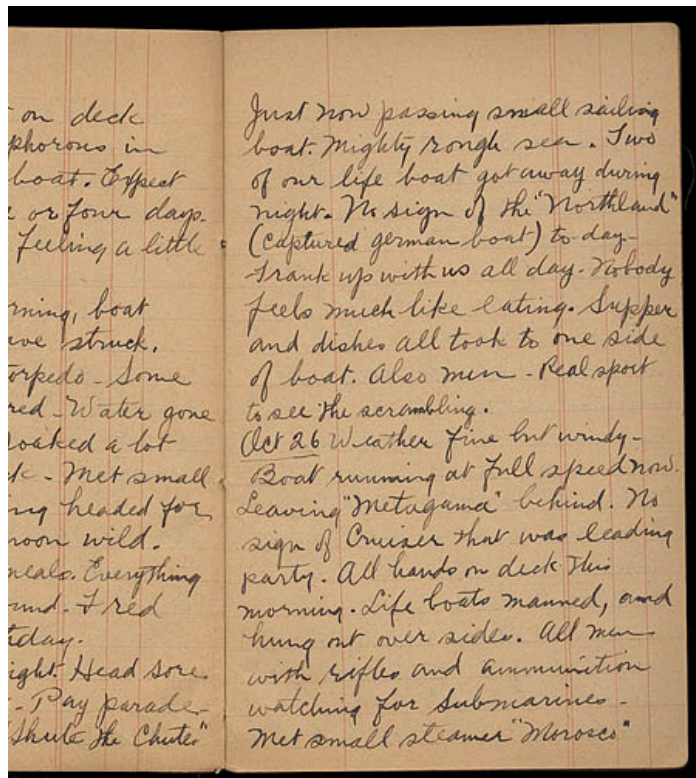 on deck
phorous in
boat. Expect
or four days.
feeling a little
rning, boat
ve struck.
orpedo - Some
red - Water gone
oaked a lot
k - Met small
ng headed for
noon wild.
meals. Everything
und. Fred
day.
ight. Head sore.
- Pay parade -
"Shute the Chutes"
Just now passing small sailing
boat. Mighty rough sea. Two
of our life boat got away during
night. No sign of the "Northland"
(captured german boat) to-day -
Frank up with us all day. Nobody
feels much like eating. Supper
and dishes all took to one side
of boat. Also men - Real sport
to see the scrambling.
Oct 26 Weather fine but windy -
Boat running at full speed now.
Leaving "Metagama" behind. No
sign of Cruiser that was leading
party. All hands on deck this
morning. Life boats manned, and
hung out over sides. All men
with rifles and ammunition
watching for Submarines -
Met small steamer "Morosco"